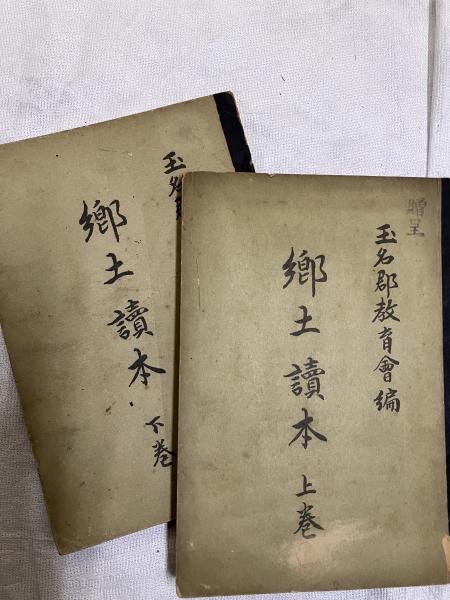 贈呈
玉名郡教育會編
鄕土讀本 上卷
玉名
鄕土讀本 下卷